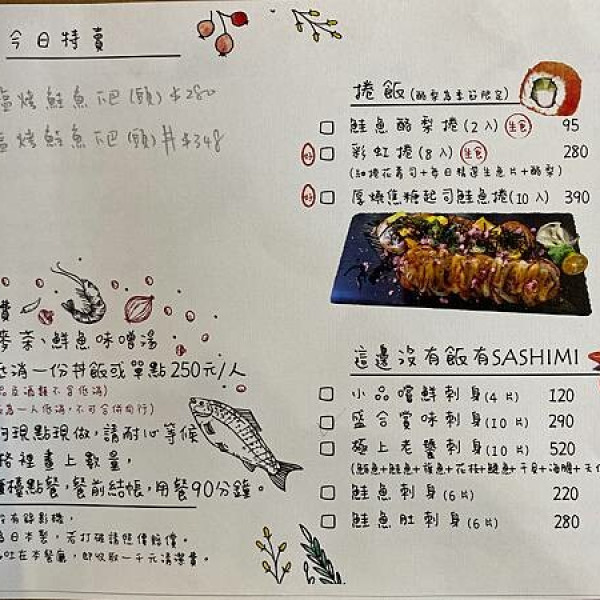 今日特賣
鹽烤鮭魚下巴(頭) $280
鹽烤鮭魚下巴(頭)丼 $348
捲飯(酪梨為季節限定)
鮭魚酪梨捲(2入) 生食 95
好 彩虹捲(8入) 生食 280
(細捲花壽司+每日精選生魚片+酪梨)
好 厚燒焦糖起司鮭魚捲(10入) 390
費
麥茶、鮮魚味噌湯
低消一份丼飯或單點250元/人
品及酒類不含低消)
為一人低消,不可合併同行)
何現點現做,請耐心等候
格裡畫上數量,
櫃檯點餐,餐前結帳,用餐90分鐘。
所有錄影機,
為日本製,若打破請照價賠償。
吐在本餐廳,即收取一千元清潔費。
這邊沒有飯有SASHIMI
小品嚐鮮刺身(4片) 120
盛合賞味刺身(10片) 290
極上老饕刺身(10片) 520
(鮪魚+鮭魚+旗魚+花枝+鰹魚+干貝+海膽+天使
鮭魚刺身(6片) 220
鮭魚肚刺身(6片) 280